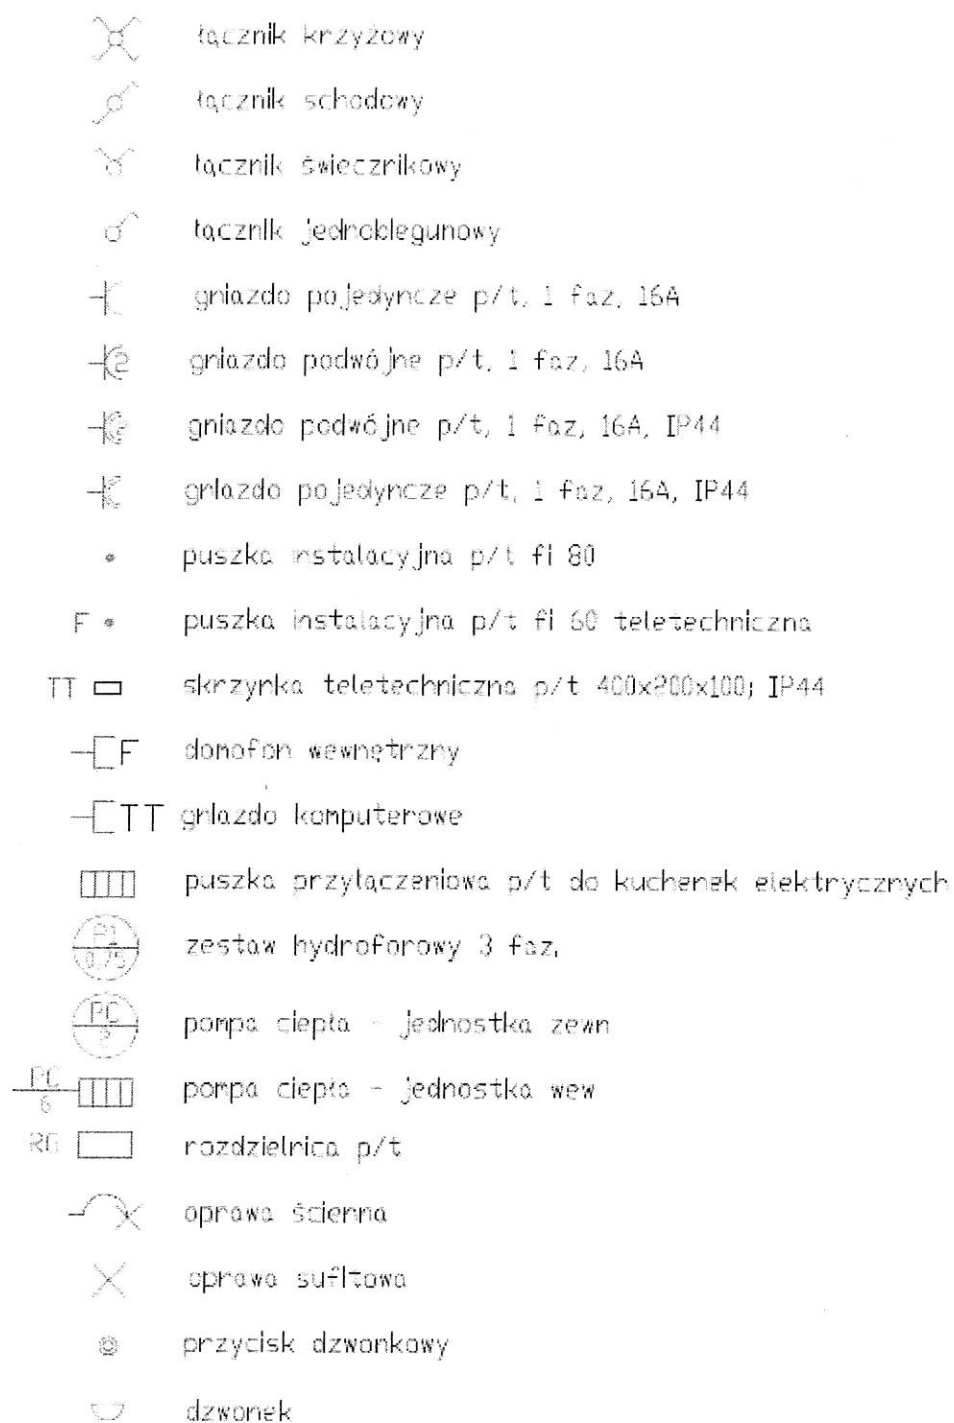 łącznik krzyżowy
łącznik schodowy
łącznik świecznikowy
łącznik jednobiegunowy
gniazdo pojedyncze p/t, 1 faz, 16A
2 gniazdo podwójne p/t, 1 faz, 16A
2 gniazdo podwójne p/t, 1 faz, 16A, IP44
gniazdo pojedyncze p/t, 1 faz, 16A, IP44
puszka instalacyjna p/t fi 80
F puszka instalacyjna p/t fi 60 teletechniczna
TT skrzynka teletechniczna p/t 400x200x100; IP44
F domofon wewnętrzny
TT gniazdo komputerowe
puszka przyłączeniowa p/t do kuchenek elektrycznych
P1
0,75 zestaw hydroforowy 3 faz,
PC
2 pompa ciepła - jednostka zewn
PC
6 pompa ciepła - jednostka wew
RG rozdzielnica p/t
oprawa ścienna
oprawa sufitowa
przycisk dzwonkowy
dzwonek